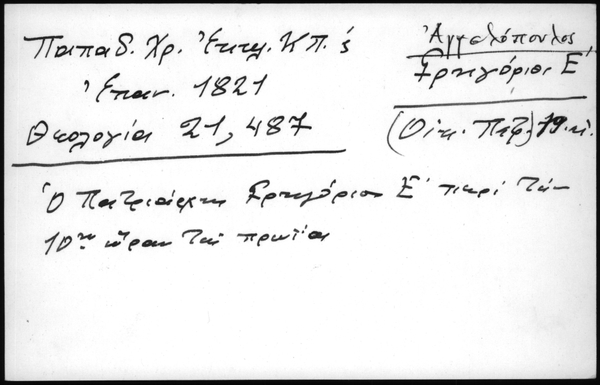 Παπαδ. Χρ. Ἐκκλ. ΚΠ. &
Ἐπαν. 1821
Θεολογία 21, 487
Ἀγγελόπουλος
Γρηγόριος Ε'
(Οἰκ. Πατρ.) 19.
Ὁ Πατριάρχης Γρηγόριος Ε' περὶ τὴν
10ην ὥραν τῆς πρωΐας